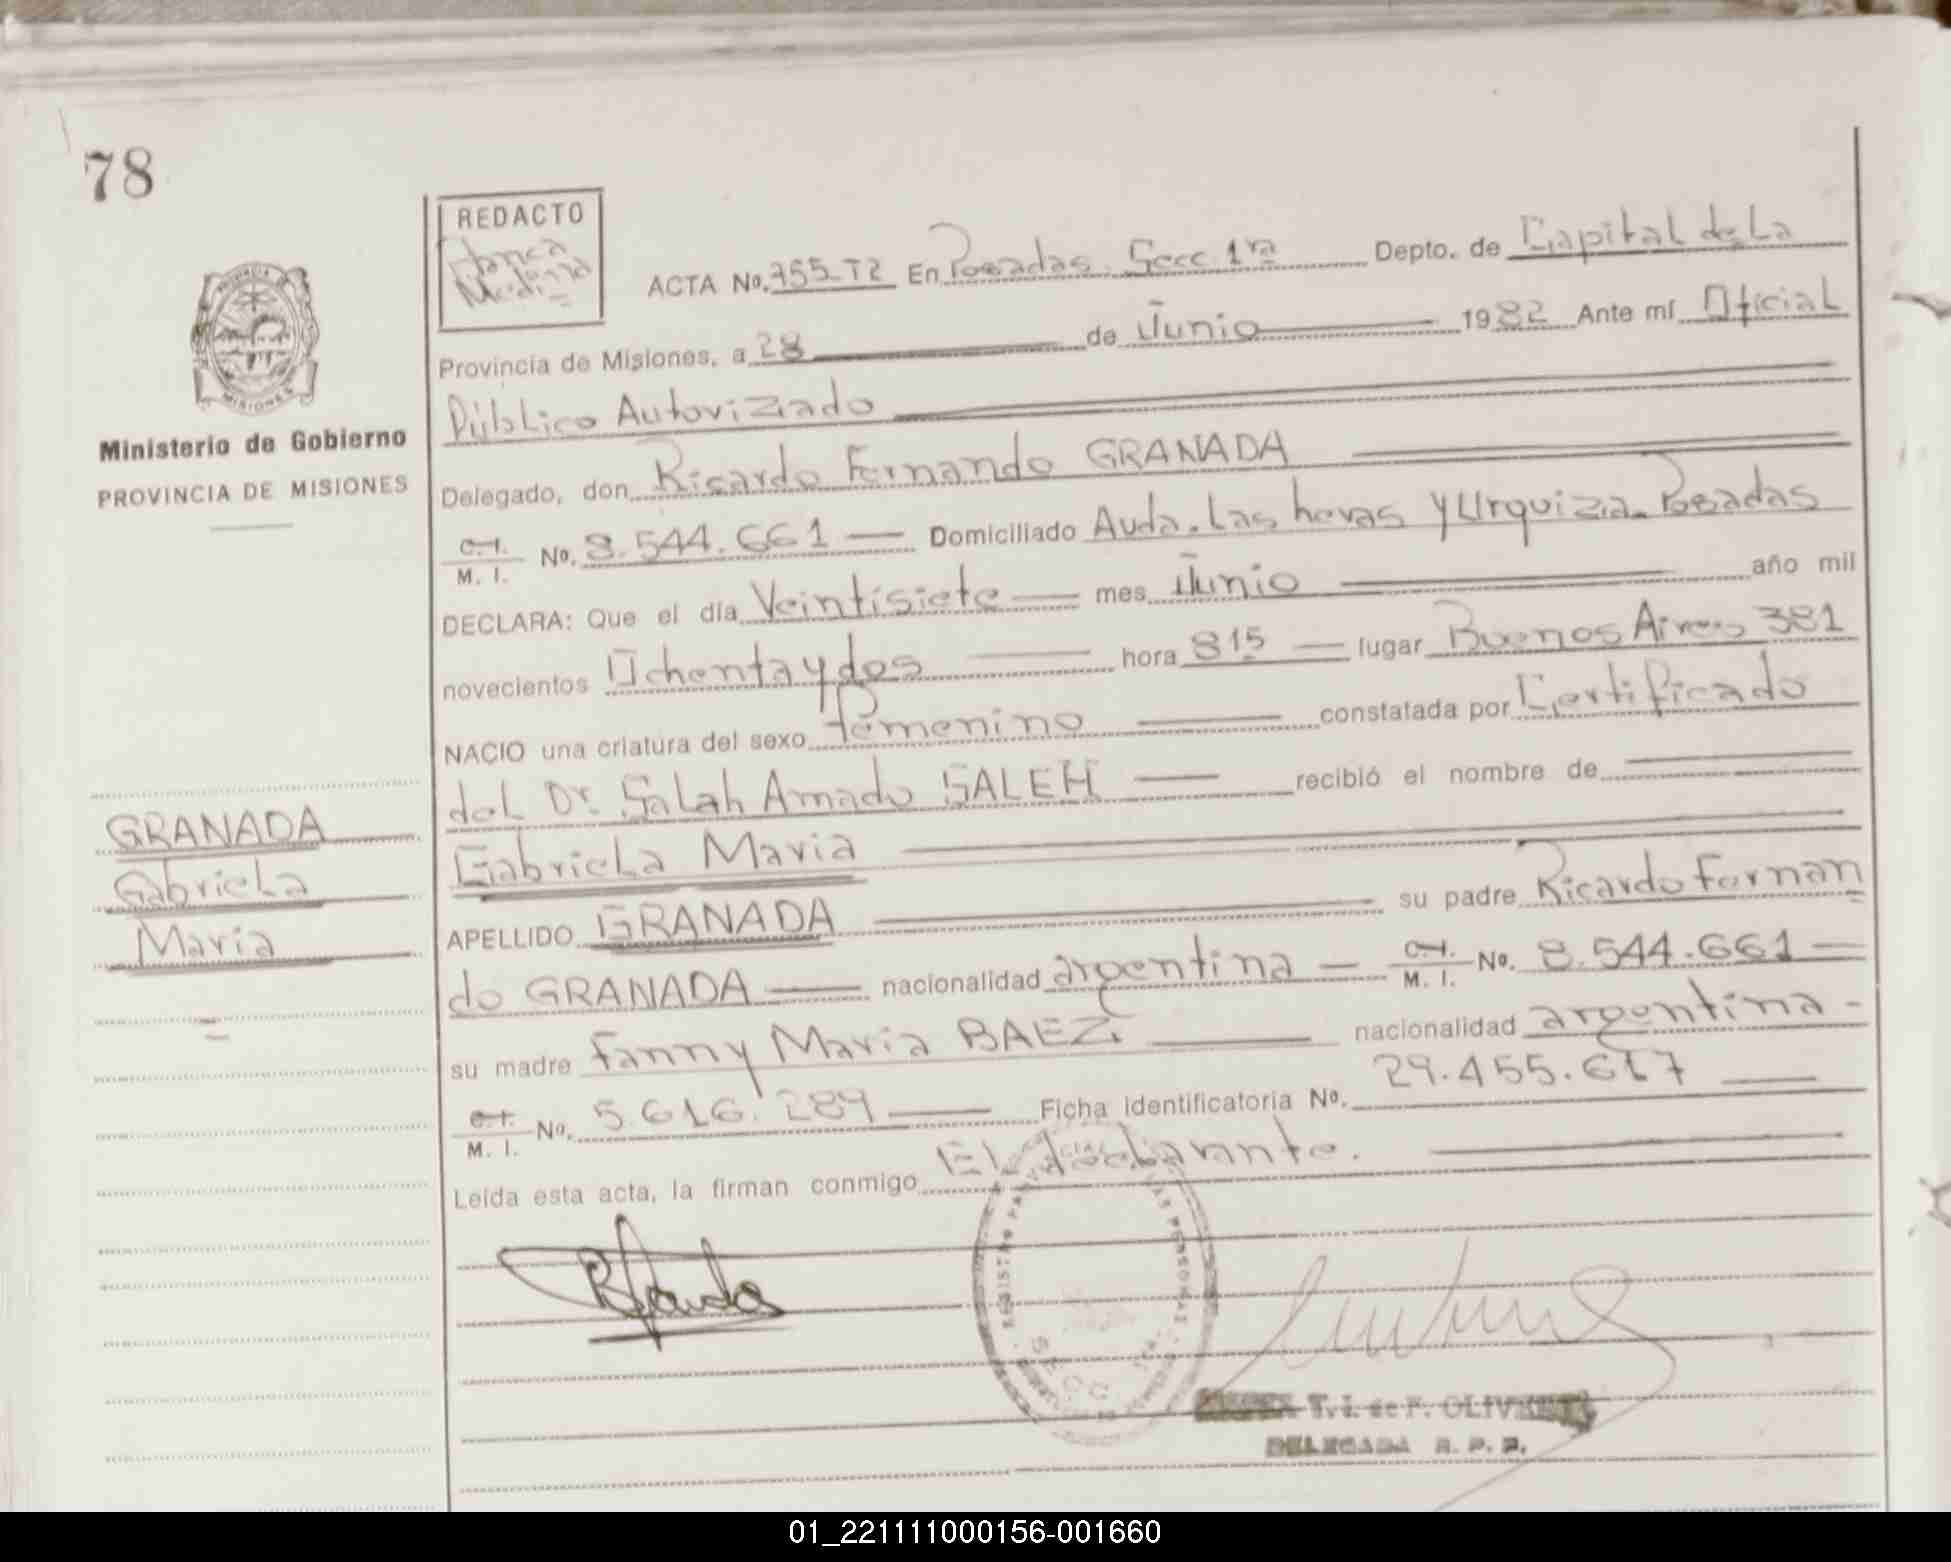 78
REDACTO
Blanca
Medina
ACTA No. 755-T2 En Posadas. Secc 1ra Depto. de Capital de La
Provincia de Misiones, a 28 de Junio 1982 Ante mí Oficial
Público Autorizado
Delegado, don Ricardo Fernando GRANADA
C.I.
M. I. No. 8.544.661 Domiciliado Avda. Las heras y Urquiza. Posadas
DECLARA: Que el día Veintisiete mes Junio año mil
novecientos Ochenta y dos hora 815 lugar Buenos Aires 381
NACIO una criatura del sexo femenino constatada por Certificado
del Dr. Salah Amado SALEH recibió el nombre de
Gabriela Maria
APELLIDO GRANADA su padre Ricardo Fernan
do GRANADA nacionalidad argentina C.I.
M. I. No. 8.544.661
su madre Fanny Maria BAEZ nacionalidad argentina
C.I.
M. I. No. 5.616.289 Ficha identificatoria No. 29.455.617
Leída esta acta, la firman conmigo El declarante.
MISIONES
Ministerio de Gobierno
PROVINCIA DE MISIONES
GRANADA
Gabriela
Maria
REGISTRO PROVINCIAL DE LAS PERSONAS
T. I. de F. OLIVEIRA
DELEGADA R. P. P.
01_221111000156-001660